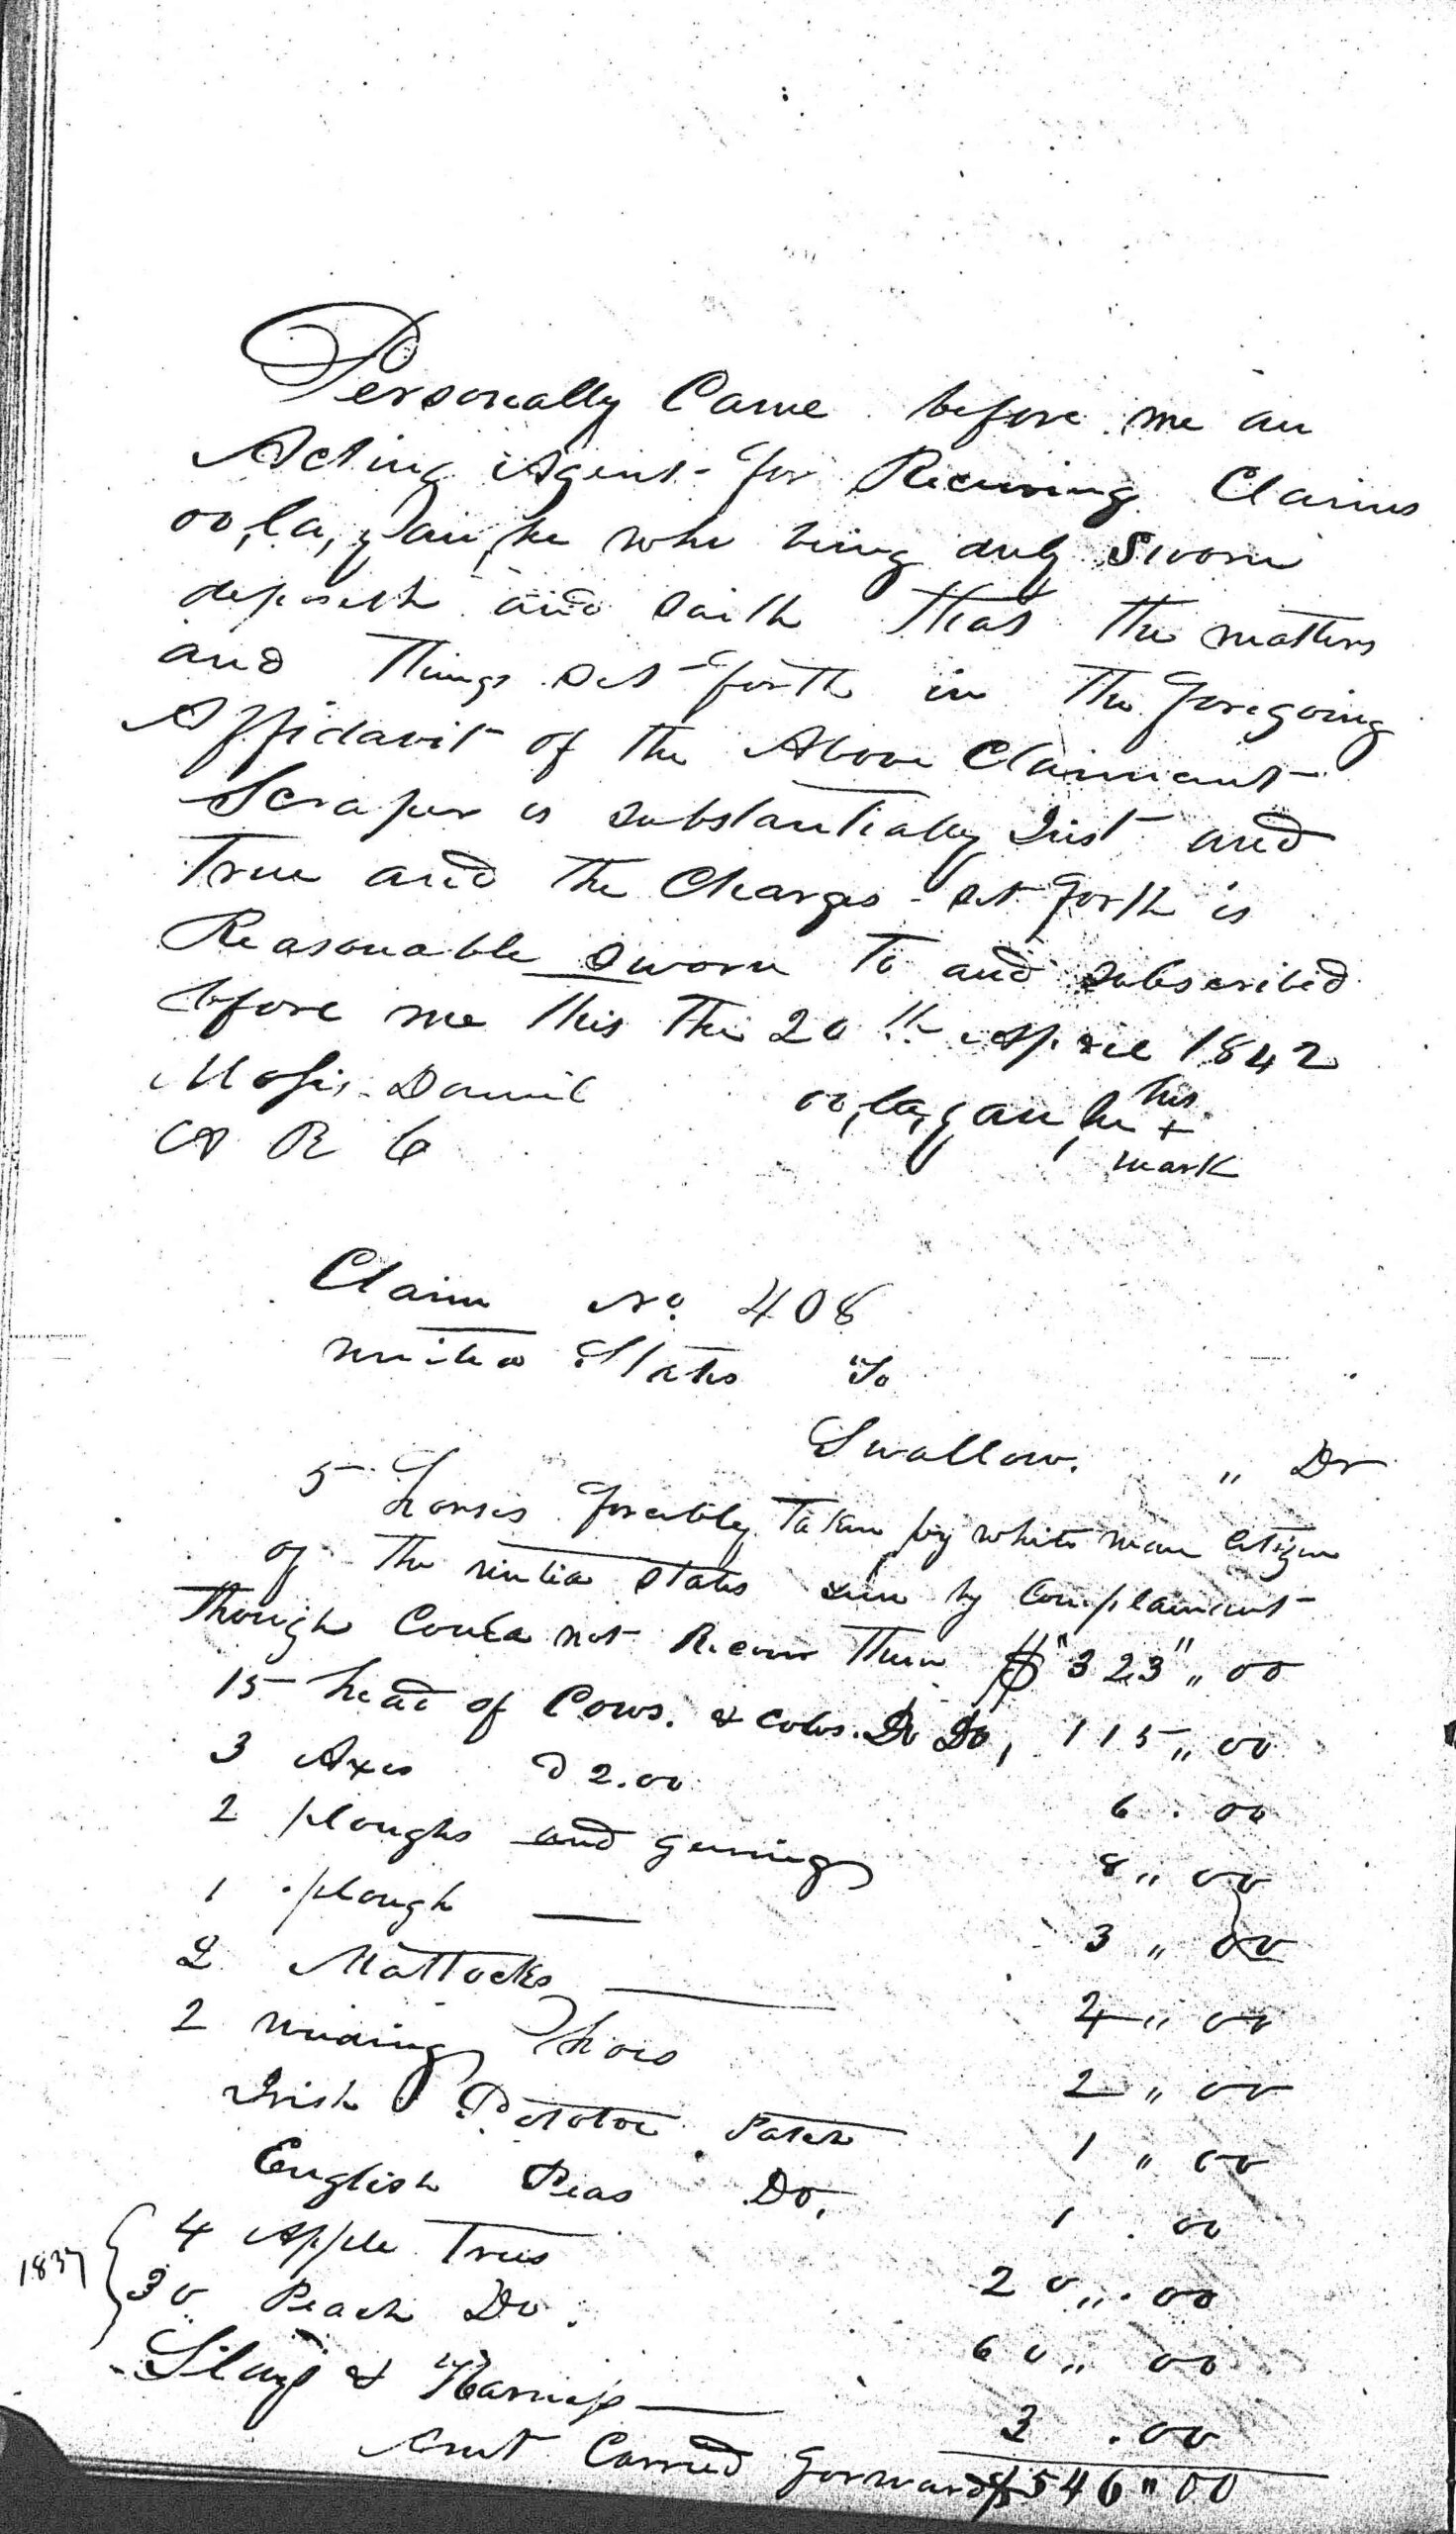 Personally Came before me an
Acting Agent for Receiving Claims
oo,la,gau,he who being duly Sworn
deposeth and saith that the matters
and Things set forth in The foregoing
Affidavit of the Above Claimant
Scraper is substantially Just and
True and The Charges set forth is
Reasonable Sworn To and subscribed
before me this The 20th April 1842
Moses Daniel oo,la,gau,he his + mark
A R C
Claim No 408
United States To
Swallow. " Dr
5 horses forcibly Taken by white man Citizen
of The United States seen by Complainant
Though Could not Recover Them $"323",, 00
15 head of Cows. & colves. Do Do, 115,, 00
3 Axes @ 2.00 6 . 00
2 ploughs and 8,, 00
1 plough — 3 ,, 00
2 Mattocks — 4 ,, 00
2 weeding hoes 2 ,, 00
Irish Potatoe Patch 1 ,, 00
English Peas Do. 1 . 00
4 Apple Trees 20,, . 00
1837 30 Peach Do. 60,, 00
Slays & Harness — 3 . 00
Amt Carried forward $546 " 00